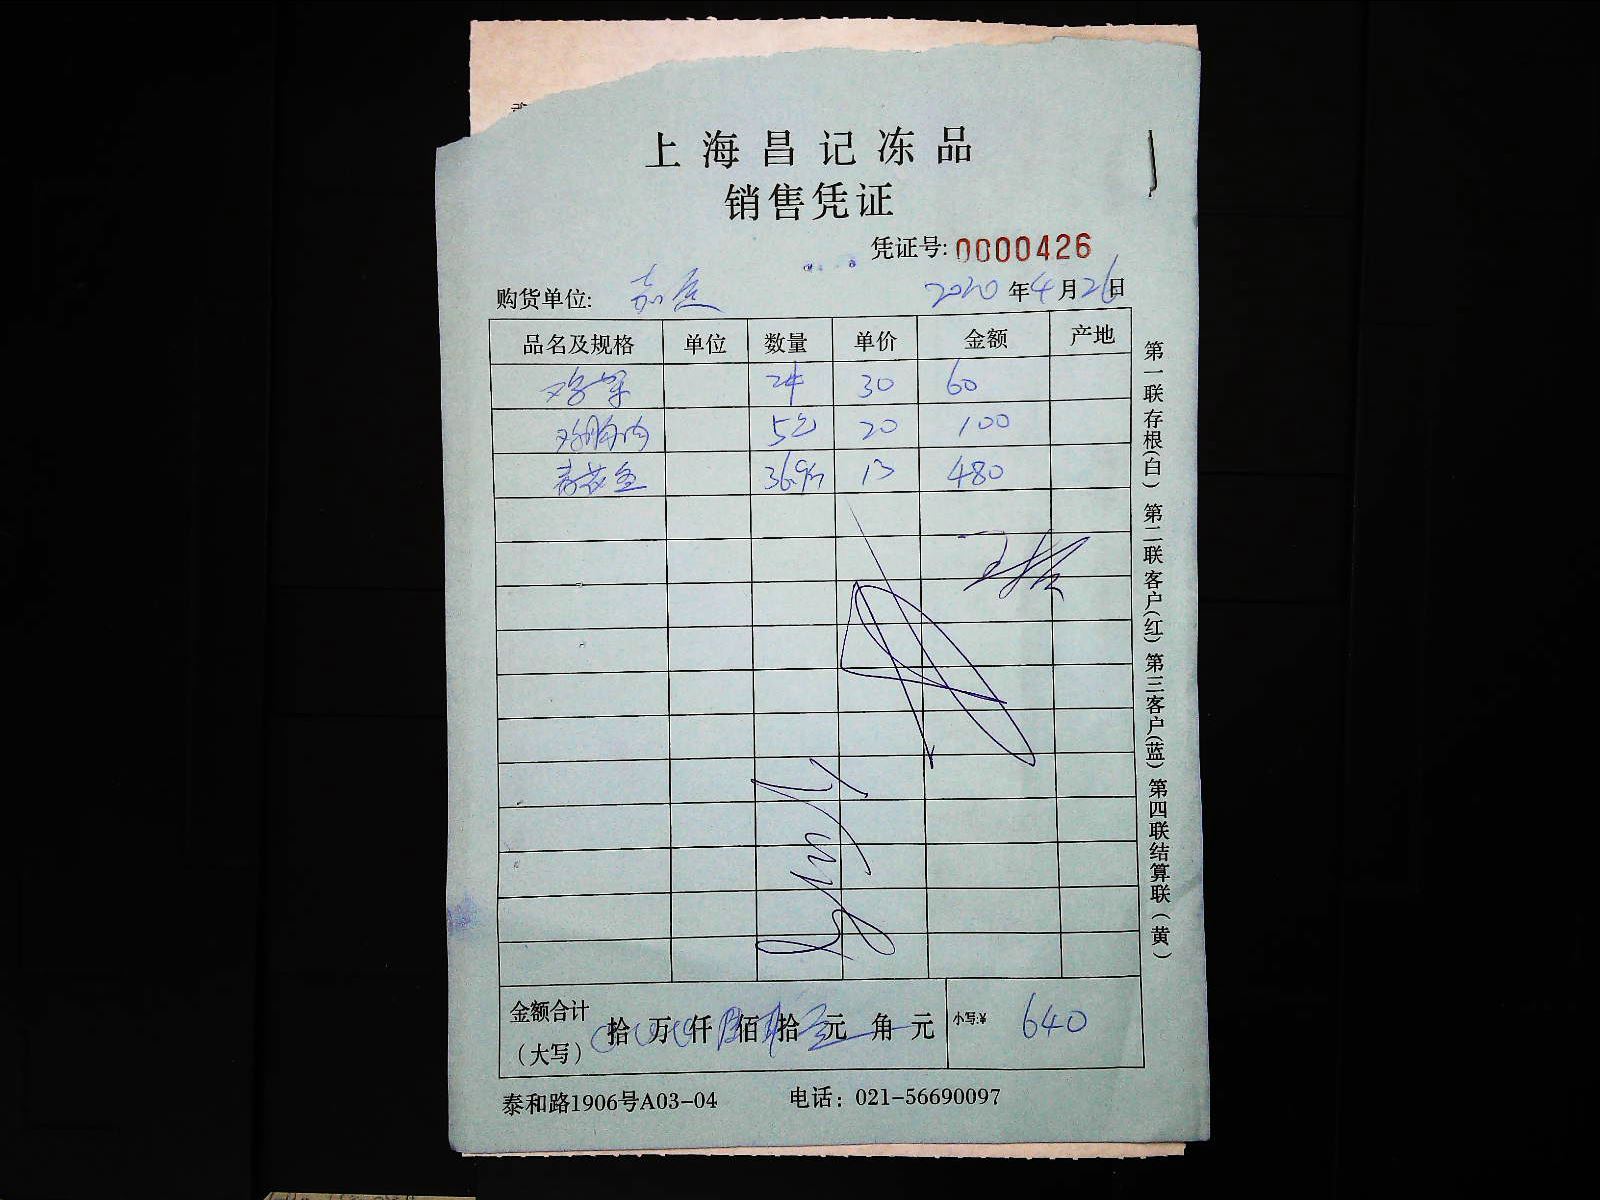 上海昌记冻品
销售凭证
凭证号: 0000426
购货单位: 嘉 2020年4月26日
品名及规格 单位 数量 单价 金额 产地
鸡 30 60
鸡胸肉 5包 20 100
青花鱼 36.9斤 13 480
金额合计 拾 万 仟 佰 拾 元 角 元 小写:¥ 640
(大写)
泰和路1906号A03-04 电话: 021-56690097
第一联存根(白) 第二联客户(红) 第三客户(蓝) 第四联结算联(黄)